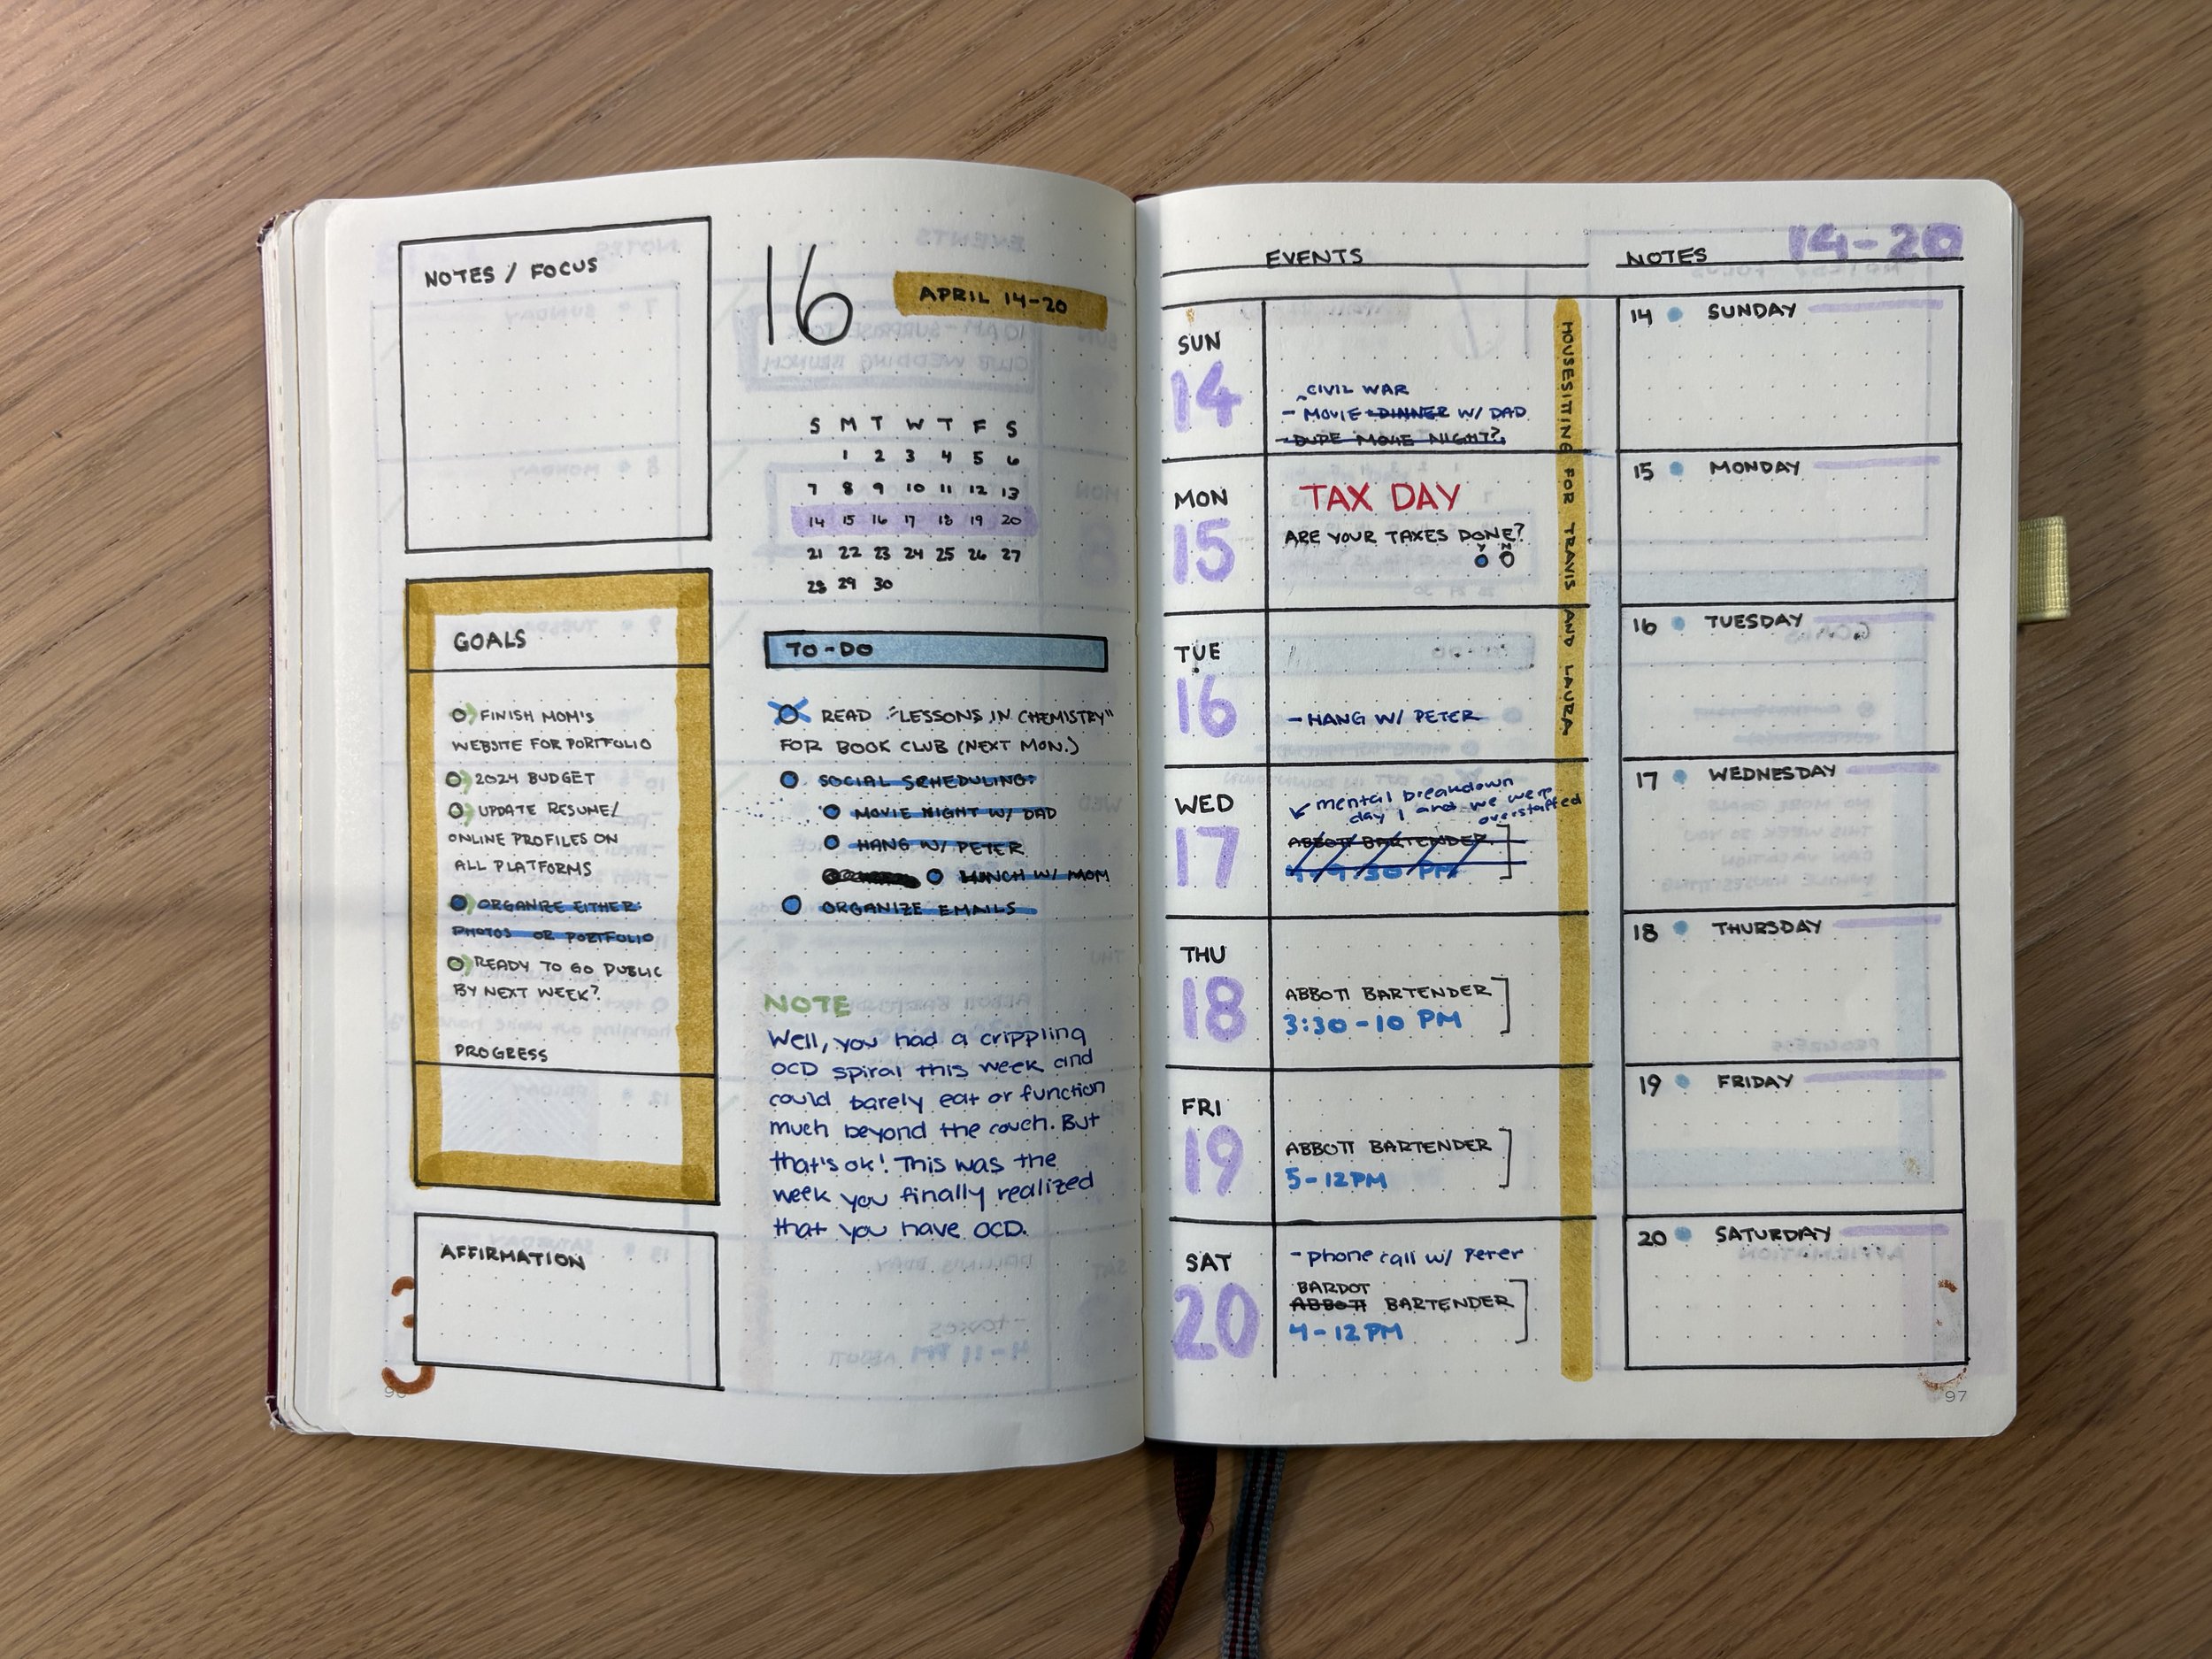 NOTES / FOCUS
GOALS
FINISH MOM'S
WEBSITE FOR PORTFOLIO
2024 BUDGET
UPDATE RESUME/
ONLINE PROFILES ON
ALL PLATFORMS
ORGANIZE EITHER
PHOTOS OR PORTFOLIO
READY TO GO PUBLIC
BY NEXT WEEK?
PROGRESS
AFFIRMATION
16
APRIL 14-20
S M T W T F S
1 2 3 4 5 6
7 8 9 10 11 12 13
14 15 16 17 18 19 20
21 22 23 24 25 26 27
28 29 30
TO-DO
READ "LESSONS IN CHEMISTRY"
FOR BOOK CLUB (NEXT MON.)
SOCIAL SCHEDULING:
MOVIE NIGHT W/ DAD
HANG W/ PETER
LUNCH W/ MOM
ORGANIZE EMAILS
NOTE
Well, you had a crippling
OCD spiral this week and
could barely eat or function
much beyond the couch. But
that's ok! This was the
week you finally realized
that you have OCD.
EVENTS
SUN
14
CIVIL WAR
- MOVIE DINNER W/ DAD
- DUPE MOVIE NIGHT?
MON
15
TAX DAY
ARE YOUR TAXES DONE?
Y N
TUE
16
- HANG W/ PETER
WED
17
mental breakdown
day 1 and we were
overstaffed
ABBOTT BARTENDER
THU
18
ABBOTT BARTENDER
3:30-10 PM
FRI
19
ABBOTT BARTENDER
5-12PM
SAT
20
- phone call w/ Peter
BARDOT
ABBOTT BARTENDER
4-12PM
HOUSESITTING FOR TRAVIS AND LAURA
NOTES 14-20
14 SUNDAY
15 MONDAY
16 TUESDAY
17 WEDNESDAY
18 THURSDAY
19 FRIDAY
20 SATURDAY
97